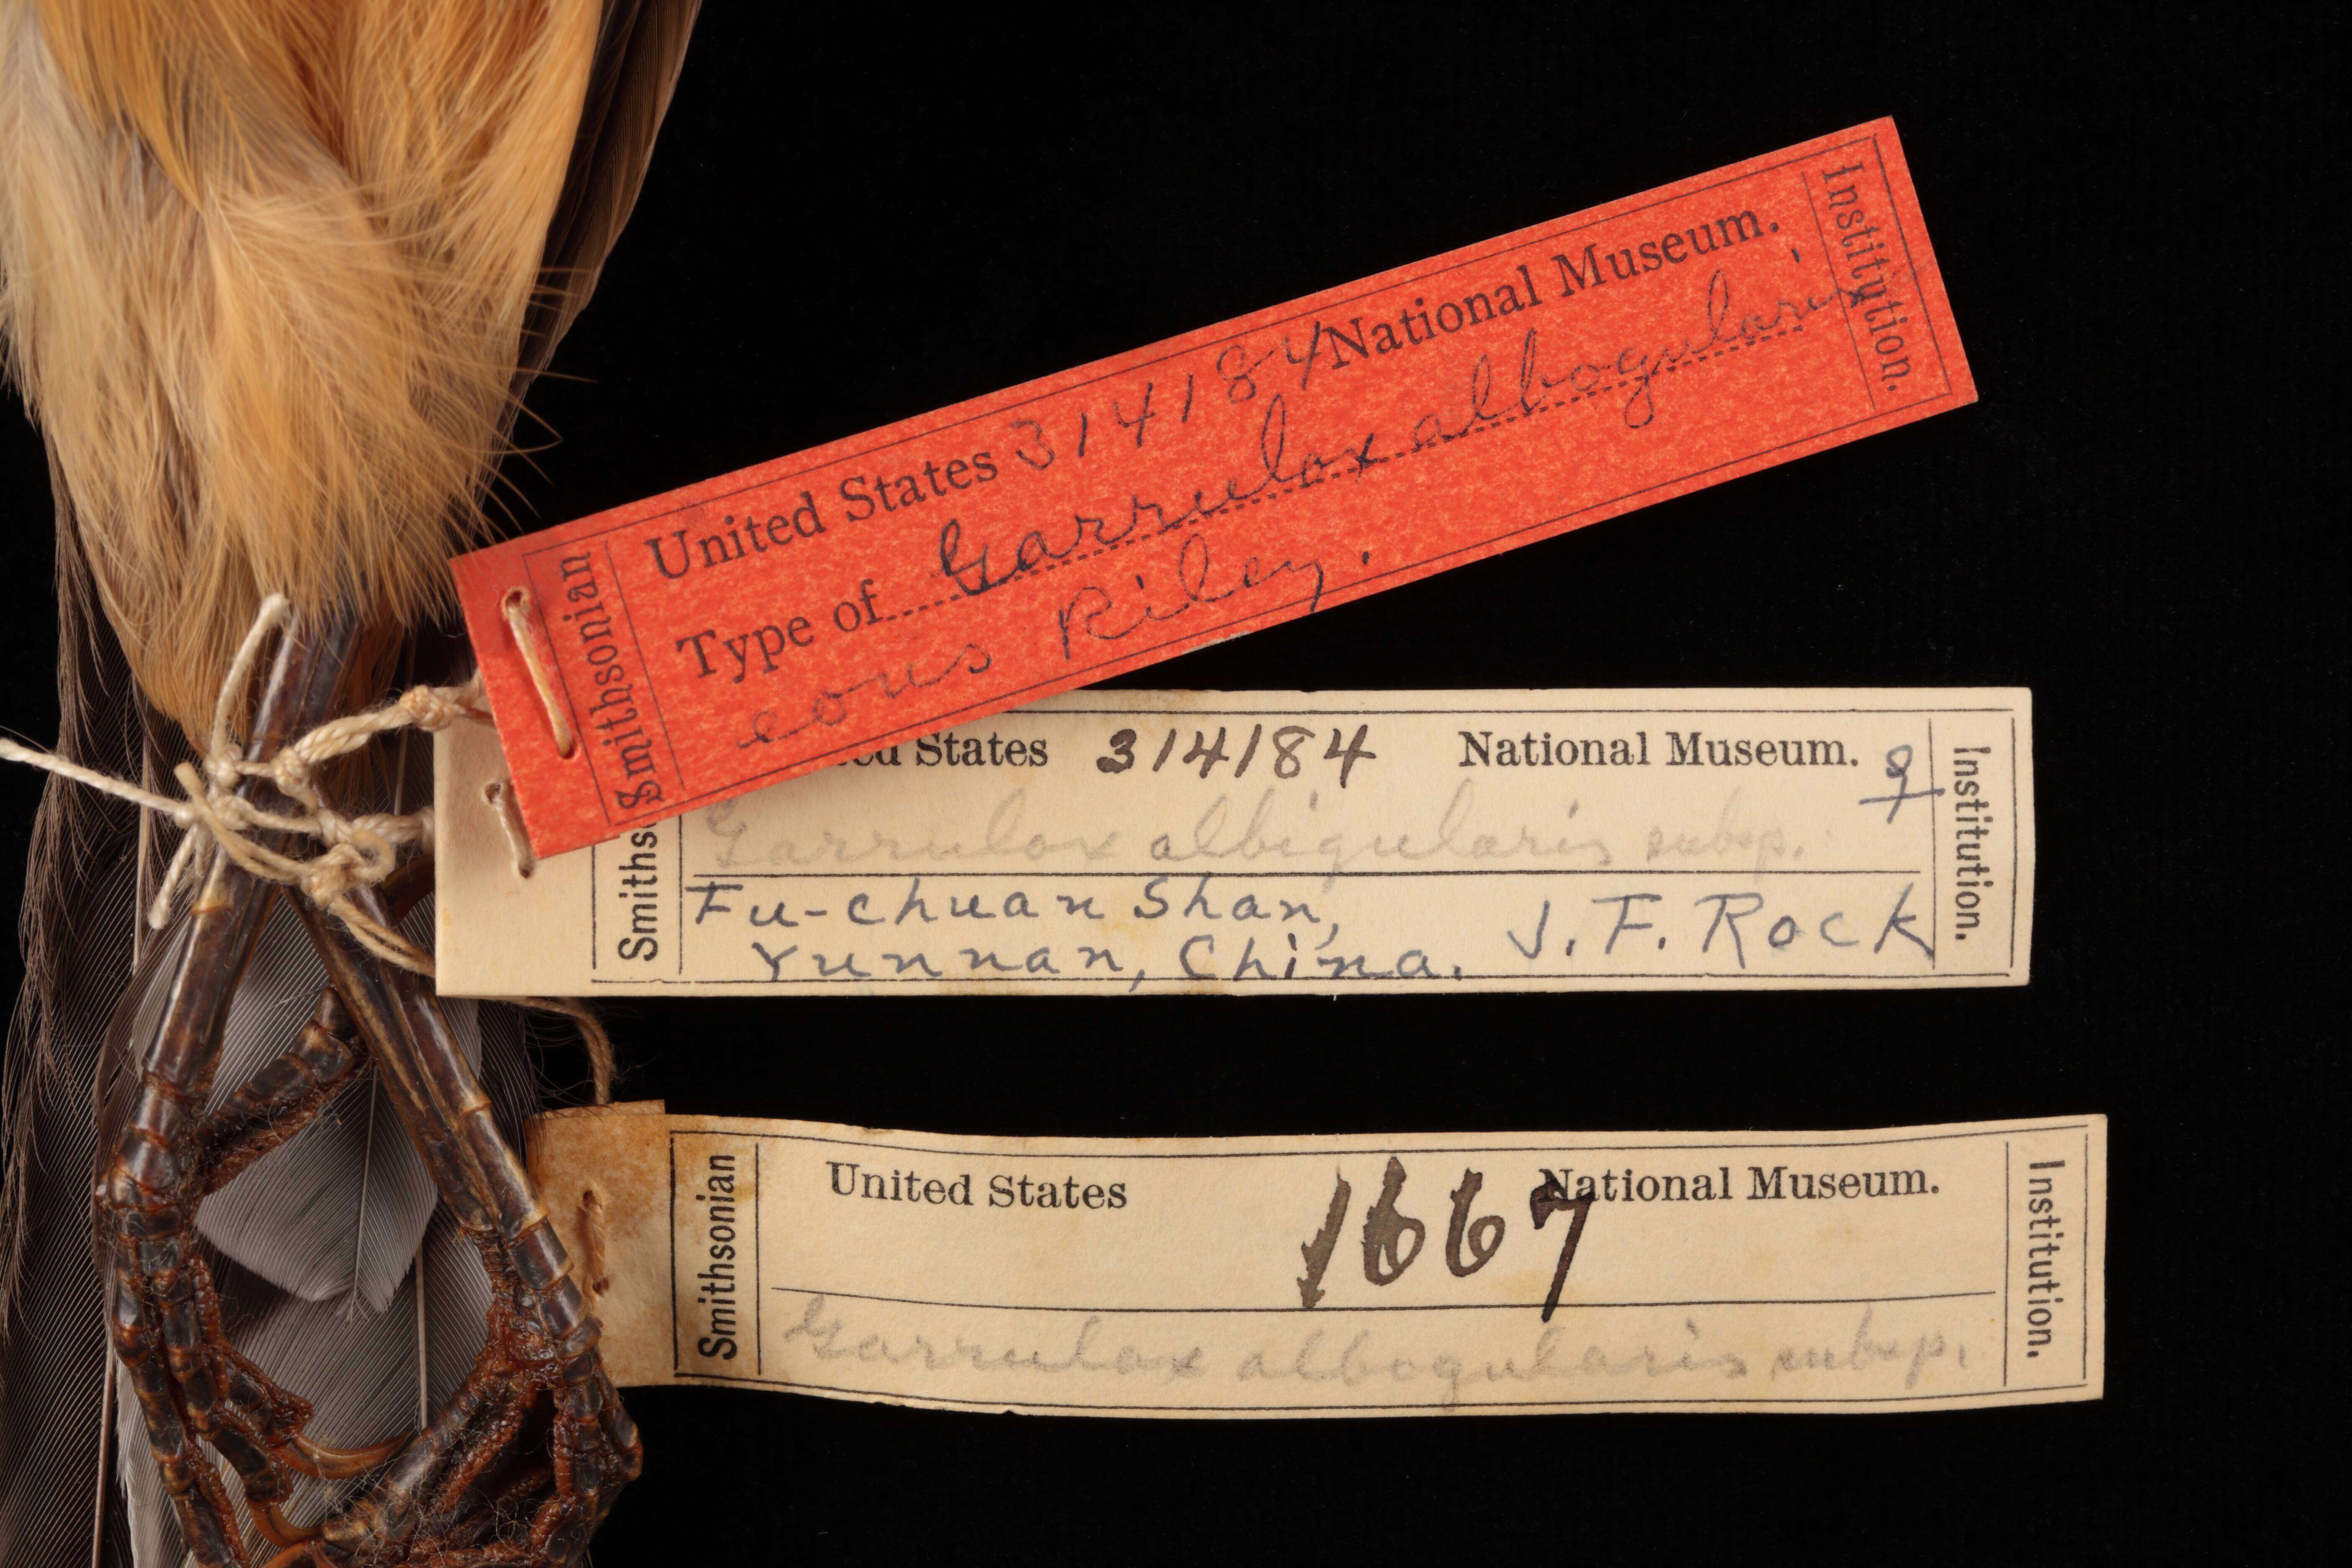 Smithsonian
United States 314184 National Museum.
Type of Garrulax albogularis
eous Riley.
Institution.
States 314184 National Museum. ♀
Garrulax albigularis subsp.
Fu-chuan Shan,
Yunnan, China. J. F. Rock
Institution.
Smithsonian
United States 1667 National Museum.
Garrulax albogularis subsp.
Institution.